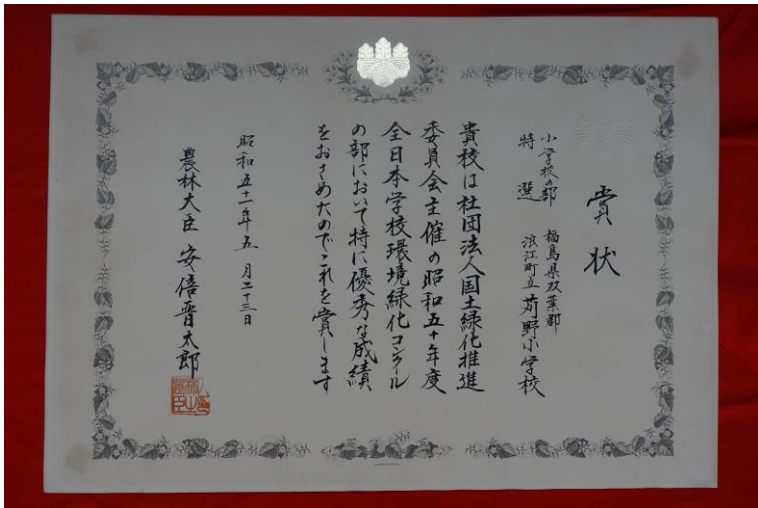 賞状
小学校の部 福島県双葉郡
特選 浪江町立苅野小学校
貴校は社団法人国土緑化推進
委員会主催の昭和五十年度
全日本学校環境緑化コンクール
の部において特に優秀な成績
をおさめたのでこれを賞します
昭和五十一年五月二十三日
農林大臣 安倍晋太郎